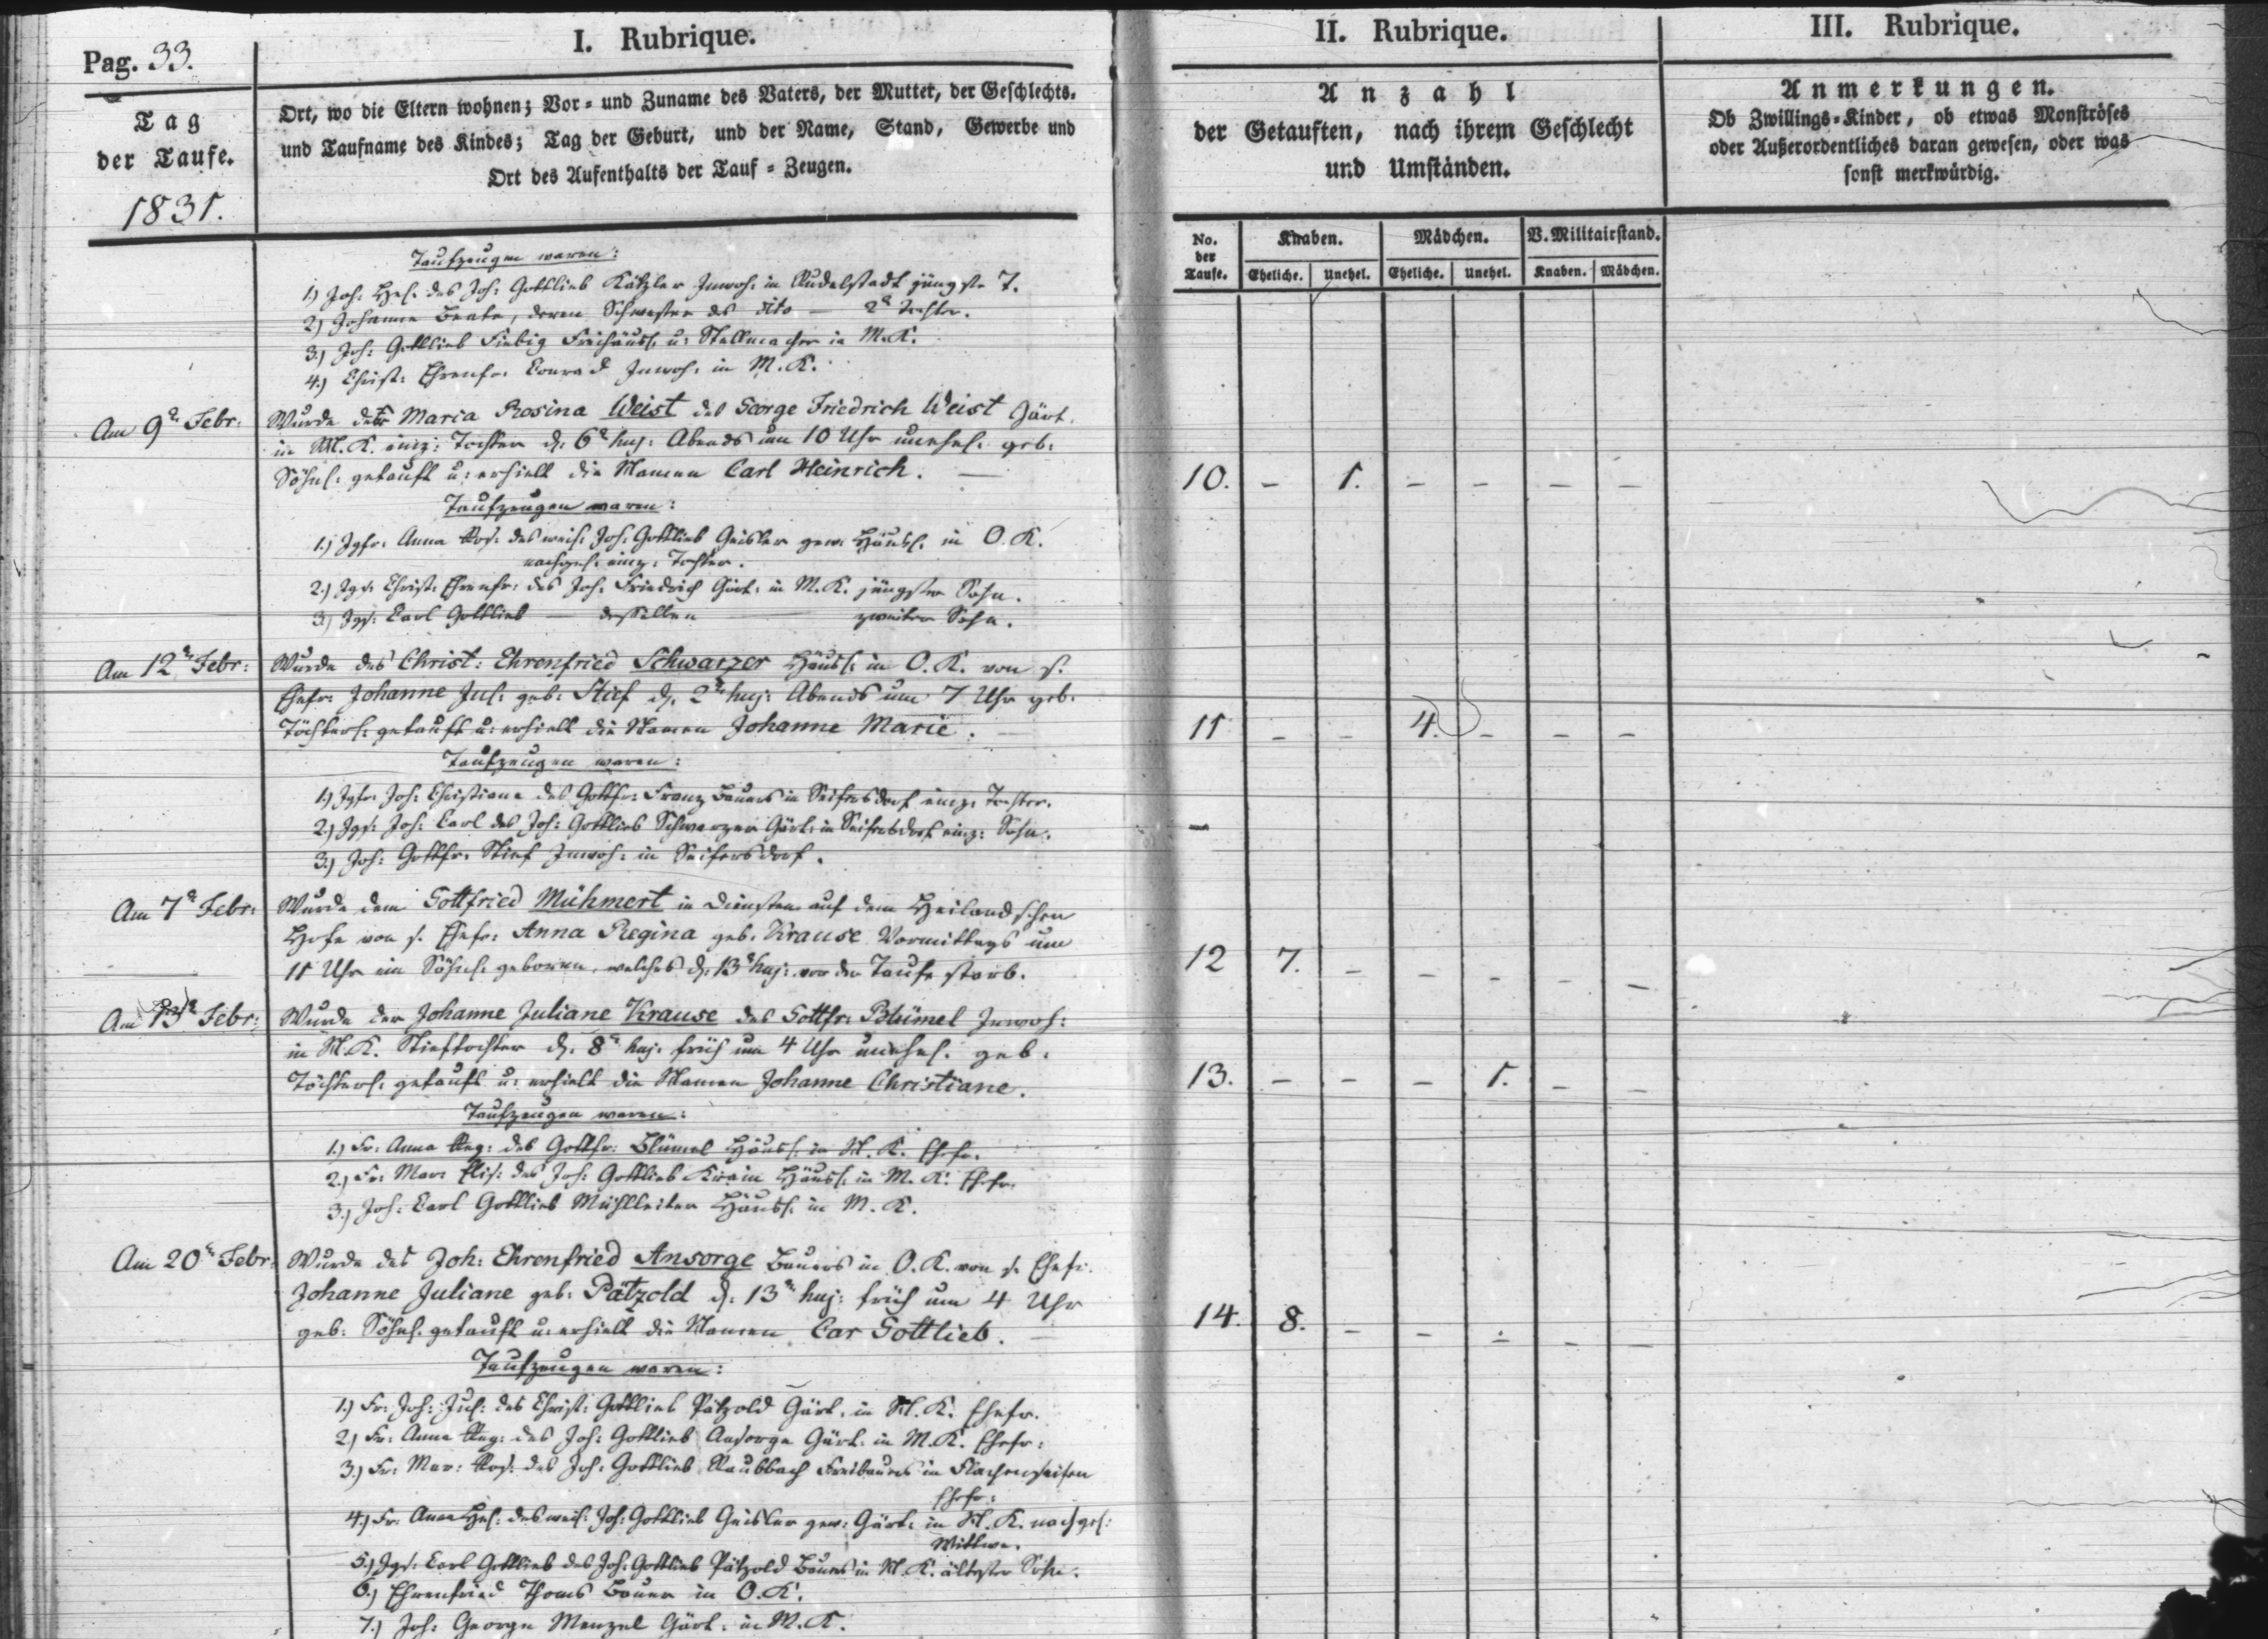 Pag. 33.
I. Rubrique.
II. Rubrique.
III. Rubrique.
Tag
der Taufe.
1831.
Ort, wo die Eltern wohnen; Vor- und Zuname des Vaters, der Mutter, der Geschlechts-
und Taufname des Kindes; Tag der Geburt, und der Name, Stand, Gewerbe und
Ort des Aufenthalts der Tauf-Zeugen.
Anzahl
der Getauften, nach ihrem Geschlecht
und Umständen.
Anmerkungen.
Ob Zwillings-Kinder, ob etwas Monströses
oder Außerordentliches daran gewesen, oder was
sonst merkwürdig.
No. der Taufe.
Knaben.
Mädchen.
V. Militairstand.
Eheliche. Unehel. Eheliche. Unehel. Knaben. Mädchen.
Taufzeugen waren:
1.) Joh: Hel. des Joh: Gottlieb Kätzler Inwoh: in Rudelstadt jüngste T.
2.) Johanne Beate, deren Schwester des dito — 2te Tochter.
3.) Joh: Gottlieb Fiebig Freihäusl. u: Stellmacher in M. K.
4.) Christ: Ehrenfr: Conrad Inwoh: in M. K.
Am 9n Febr: Wurde der Maria Rosina Weist des George Friedrich Weist Gärt.
in M. K. einz: Tochter d. 6n huj: Abends um 10 Uhr unehel. geb:
Söhnl. getauft u: erhielt die Namen Carl Heinrich. —
10. – 1. – – – –
Taufzeugen waren:
1.) Jgfr: Anna Ros: des weil. Joh: Gottlieb Geisler gew: Häusl. in O. K.
nachgel. einz: Tochter.
2.) Jgs: Christ: Ehrenfr: des Joh: Friedrich Gärt: in M. K. jüngster Sohn.
3.) Jgs: Carl Gottlieb — desselben — zweiter Sohn.
Am 12n Febr: Wurde des Christ: Ehrenfried Schwarzer Häusl. in O. K. von s.
Ehefr: Johanne Jul: geb: Stief d. 2n huj: Abends um 7 Uhr geb.
Töchterl. getauft u: erhielt die Namen Johanne Marie. —
11 – – 4. – – –
Taufzeugen waren:
1.) Jgfr: Joh: Christiane des Gottfr: Franz Bauers in Seifersdorf einz: Tochter.
2.) Jgs: Joh: Carl des Joh: Gottlieb Schwarzer Gärt: in Seifersdorf einz: Sohn.
3.) Joh: Gottfr: Stief Inwoh: in Seifersdorf.
Am 7n Febr: Wurde dem Gottfried Mühmert in Diensten auf dem Heilandschen
Hofe von s. Ehefr: Anna Regina geb: Krause Vormittags um
11 Uhr ein Söhnl. geboren, welches d. 13n huj: vor der Taufe starb.
12 7. – – – – –
Am 13n Febr: Wurde der Johanne Juliane Krause des Gottfr: Blümel Inwoh:
in M. K. Stieftochter d. 8n huj: früh um 4 Uhr unehel. geb:
Töchterl. getauft u: erhielt die Namen Johanne Christiane.
13. – – – 1. – –
Taufzeugen waren:
1.) Fr: Anna Reg: des Gottfr: Blümel Häusl. in M. K. Ehefr.
2.) Fr: Mar: Elis: des Joh: Gottlieb Häusl. in M. K. Ehefr.
3.) Joh: Carl Gottlieb Mühlleiter Häusl. in M. K.
Am 20n Febr: Wurde des Joh: Ehrenfried Ansorge Bauers in O. K. von s. Ehefr.
Johanne Juliane geb: Pätzold d. 13n huj: früh um 4 Uhr
geb: Söhnl. getauft u: erhielt die Namen Car Gottlieb. —
14. 8. – – – – –
Taufzeugen waren:
1.) Fr: Joh: Jul: des Christ: Gottlieb Pätzold Gärt: in M. K. Ehefr.
2.) Fr: Anna Reg: des Joh: Gottlieb Ansorge Gärt: in M. K. Ehefr:
3.) Fr: Mar: Ros: des Joh: Gottlieb Raubbach Freibauers in Flachenseifen
Ehefr:
4.) Fr: Anna Hel: des weil: Joh: Gottlieb Geisler gew: Gärt: in M. K. nachgel:
Wittwe.
5.) Jgs: Carl Gottlieb des Joh: Gottlieb Pätzold Bauers in M. K. ältester Sohn.
6.) Ehrenfried Thoms Bauer in O. K.
7.) Joh: George Menzel Gärt: in M. K.